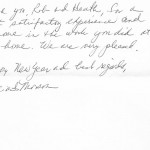 you, Rob and Heath, for a
satisfactory experience and
in the work you did at
home. We are very pleased.
New Year and best regards,